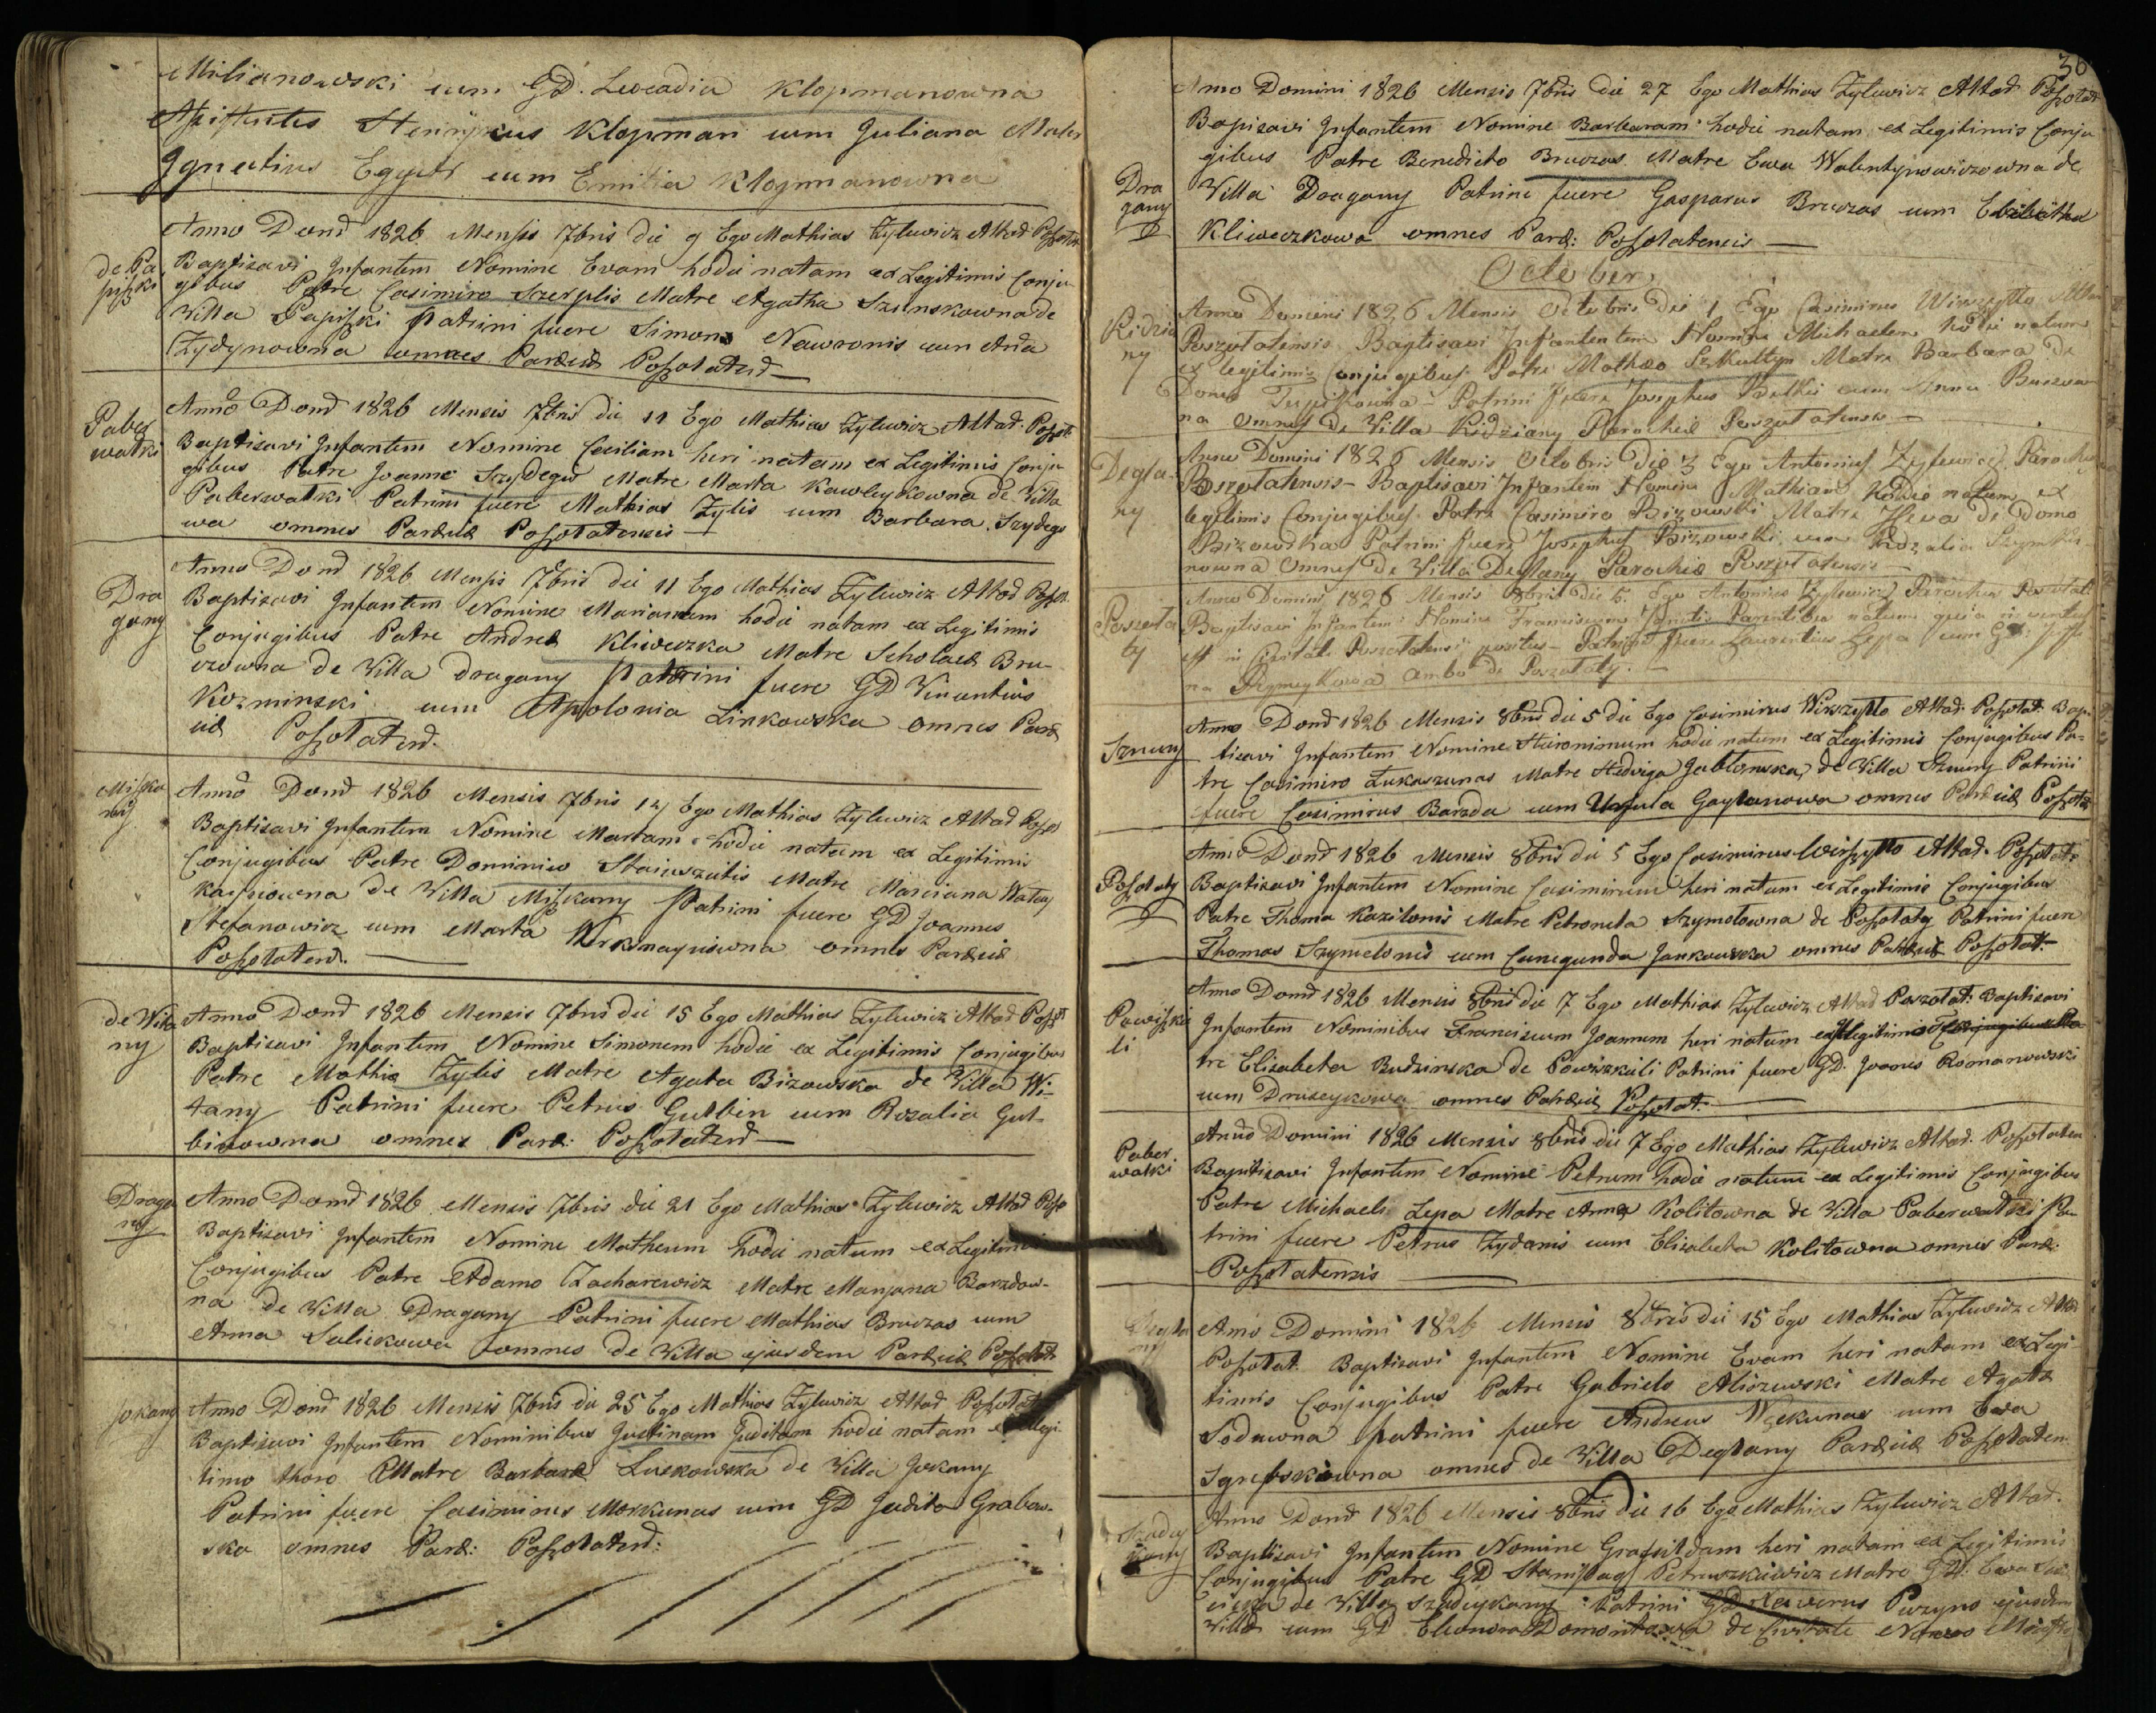 Milianowski cum GD. Leocadia Klopmanowna
Assistentes Henrycus Klopman cum Juliana
Ignatius cum Emilia Klopmanowna
de Pa
piszki
Anno Domd 1826 Mensis 7bris die 9 Ego Mathias Zylewicz Altad Poszolat
Baptisavi Infantem Nomine Evam hodie natam ex Legitimis Conju
gibus Patre Casimiro Szerplis Matre Agatha de
Villa Papiszki Patrini fuere Simon Nawronis cum
Zydynowna omnes Parchiæ Poszolatend
Paber
watki
Anno Domd 1826 Mensis 7bris die 11 Ego Mathias Zylewicz Altad: Poszolt
Baptisavi Infantem Nomine Ceciliam heri natam ex Legitimis Conju
gibus Patre Joanne Szydegis Matre Marta Kawleykowna de Villa
Paberwatki Patrini fuere Mathias Zylis cum Barbara Szydegi
wa omnes Parchiæ Poszolatensis
Dra
gany
Anno Domd 1826 Mensis 7bris die 11 Ego Mathias Zylewicz Altad Poszolt
Baptisavi Infantem Nomine Mariannem hodie natam ex Legitimis
Conjugibus Patre Andrea Kliweczka Matre Scholast Bru-
czowna de Villa dragany Patrini fuere GD Vincentius
Kozminski cum Apolonia Linkowska omnes Parch
iæ Poszolatend.
Miszka
ny
Anno Domd 1826 Mensis 7bris 14 Ego Mathias Zylewicz Altad Poszol
Baptisavi Infantem Nomine Martam hodie natam ex Legitimis
Conjugibus Patre Dominico Staniszaitis Matre Marciana
de Villa Miszkany Patrini fuere GD Joannes
Stefanowicz cum Marta omnes Parchiæ
Poszolatend.
de Wita
ny
Anno Domd 1826 Mensis 7bris die 15 Ego Mathias Zylewicz Altad Poszolt
Baptisavi Infantem Nomine Simonem hodie ex Legitimis Conjugibus
Patre Mathia Zylis Matre Agata Bizowska de Villa Wi-
tany Patrini fuere Petrus Gutbin cum Rozalia Gut-
binowna omnes Parch: Poszolatend
Draga
ny
Anno Domd 1826 Mensis 7bris die 21 Ego Mathias Zylewicz Altad Poszo
Baptisavi Infantem Nomine Matheum hodie natum ex Legitimis
Conjugibus Patre Adamo Zacharewicz Matre Manjana Barzdow-
na de Villa Dragany Patrini fuere Mathias Bruczas cum
Anna Salickowa omnes de Villa ejusdem Parchiæ Poszolat
Jokany
Anno Domd 1826 Mensis 7bris die 25 Ego Mathias Zylewicz Altad Poszolat
Baptisavi Infantem Nominibus Justinam Juditam hodie natam ex Illegi
timo thoro Matre Barbara Luskowska de Villa Jokany
Patrini fuere Casimirus Morkunas cum GD Judita Grabow-
ska omnes Parch: Poszolatend:
36
Dra
gany
Anno Domini 1826 Mensis 7bris die 27 Ego Mathias Zylewicz Altad Poszolat
Bapisavi Infantem Nomine Barbaram hodie natam ex Legitimis Conju
gibus Patre Benedicto Bruczas Matre Ewa Walentynowiczowna de
Villa Dragany Patrini fuere Gasparus Bruczas cum
Kliweczkowa omnes Parch: Poszolatensis
October
Kidzia
ny
Anno Domini 1826 Mensis Octobris die 1 Ego Casimirus Wirszyllo Altar
Poszolatensis Baptisavi Infantentem Nomine Michaelem hodie natum
ex legitimis Conjugibus Patre Mathæo Szkultyn Matre Barbara de
Domo Patrini fuere Josephus Butkis cum Anna
na Omnes de Villa Kidziany Parochiæ Poszolatensis
Degla
ny
Anno Domini 1826 Mensis Octobris Die 3 Ego Antonius Zylewicz Parochus
Poszolatensis Baptisavi Infantem Nomine Mathiam hodie natum ex
legitimis Conjugibus Patre Casimiro Bizowski Matre Hewa de Domo
Bizowska Patrini fuere Josephus Bizowski cum Rozalia
nowna Omnes de Villa Deglany Parochiæ Poszolatensis
Poszola
ty
Anno Domini 1826 Mensis 8bris die 5 Ego Antonius Zylewicz Parochus Poszolat
Baptisavi Infantem Nomine Franciscum Ignotis Parentibus natum quia inventus
est in Civitate Poszolatensi positus Patrini fuere Laurentius Lepa cum
na ambo de Poszolaty.
Sznury
Anno Domd 1826 Mensis 8bris die 5 die Ego Casimirus Wirszyllo Altad. Poszolat. Bap-
tisavi Infantem Nomine Hieronimum hodie natum ex Legitimis Conjugibus Pa-
tre Casimiro Lukaszunas Matre Hedviga Jablonska de Villa Sznury Patrini
fuere Casimirus Barzda cum Ursula Gaylunowa omnes Parchiæ Poszolt
Poszolaty
Anno Domd 1826 Mensis 8bris die 5 Ego Casimirus Wirszyllo Altad. Poszolat
Baptisavi Infantem Nomine Casimirum heri natum ex Legitimis Conjugibus
Patre Thoma Kazilonis Matre Petronela Szymelowna de Poszolaty Patrini fuere
Thomas Szymelonis cum Cunegunda Jankowska omnes Parchiæ Poszolat.
Powiszku
li
Anno Domd 1826 Mensis 8bris die 7 Ego Mathias Zylewicz Altad Poszolat: Baptisavi
Infantem Nominibus Franciscum Joannem heri natum ex Illegitimis Conjugibus Ma-
tre Elizabeta Budzinska de Powiszkuli Patrini fuere GD. Joanes Romanowski
cum Druseykowa omnes Parchiæ Poszolat.
Paber
walki
Anno Domini 1826 Mensis 8bris die 7 Ego Mathias Zylewicz Altad. Poszolaten
Baptisavi Infantem Nomine Petrum hodie natum ex Legitimis Conjugibus
Patre Michaele Lepa Matre Anna Kolitowna de Villa Paberwalki Pa
trini fuere Petrus Zydanis cum Elizabeta Kolitowna omnes Parch:
Poszolatensis
Degla
ny
Anno Domini 1826 Mensis 8bris die 15 Ego Mathias Zylewicz Altar
Poszolat. Baptisavi Infantem Nomine Evam heri natam ex Legi-
timis Conjugibus Patre Gabriele Aliszewski Matre Agatha
Sodawna Patrini fuere Andreas Wekunas cum Ewa
omnes de Villa Deglany Parchiæ Poszolaten
Anno Domd 1826 Mensis 8bris Die 16 Ego Mathias Zylewicz Altad.
Baptisavi Infantem Nomine Grafsildam heri natam ex Legitimis
Conjugibus Patre GD Stanislao Petruszkiewicz Matre GD. Ewa
de Villa Szadeykany Patrini GD Xaverus Puzyno ejusdem
Villæ cum GD Eleonora Domontowa de Civitate